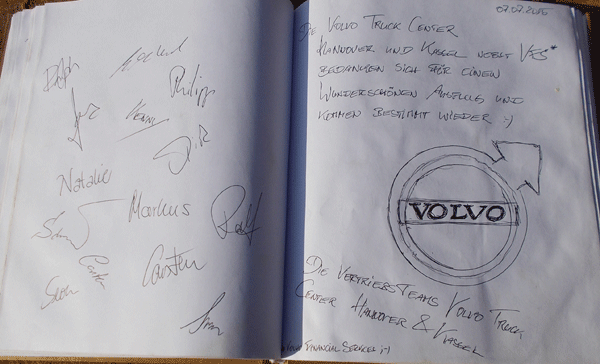 Ralph
Philipp
Kenny
Dirk
Natalie
Markus
Ralf
Carsten
Sven
07.07.2015
DIE VOLVO TRUCK CENTER
HANNOVER UND KASSEL NEBST VFS*
BEDANKEN SICH FÜR EINEN
WUNDERSCHÖNEN AUSFLUG UND
KOMMEN BESTIMMT WIEDER :-)
VOLVO
DIE VERTRIEBSTEAMS VOLVO TRUCK
CENTER HANNOVER & KASSEL
FINANCIAL SERVICES ;-)